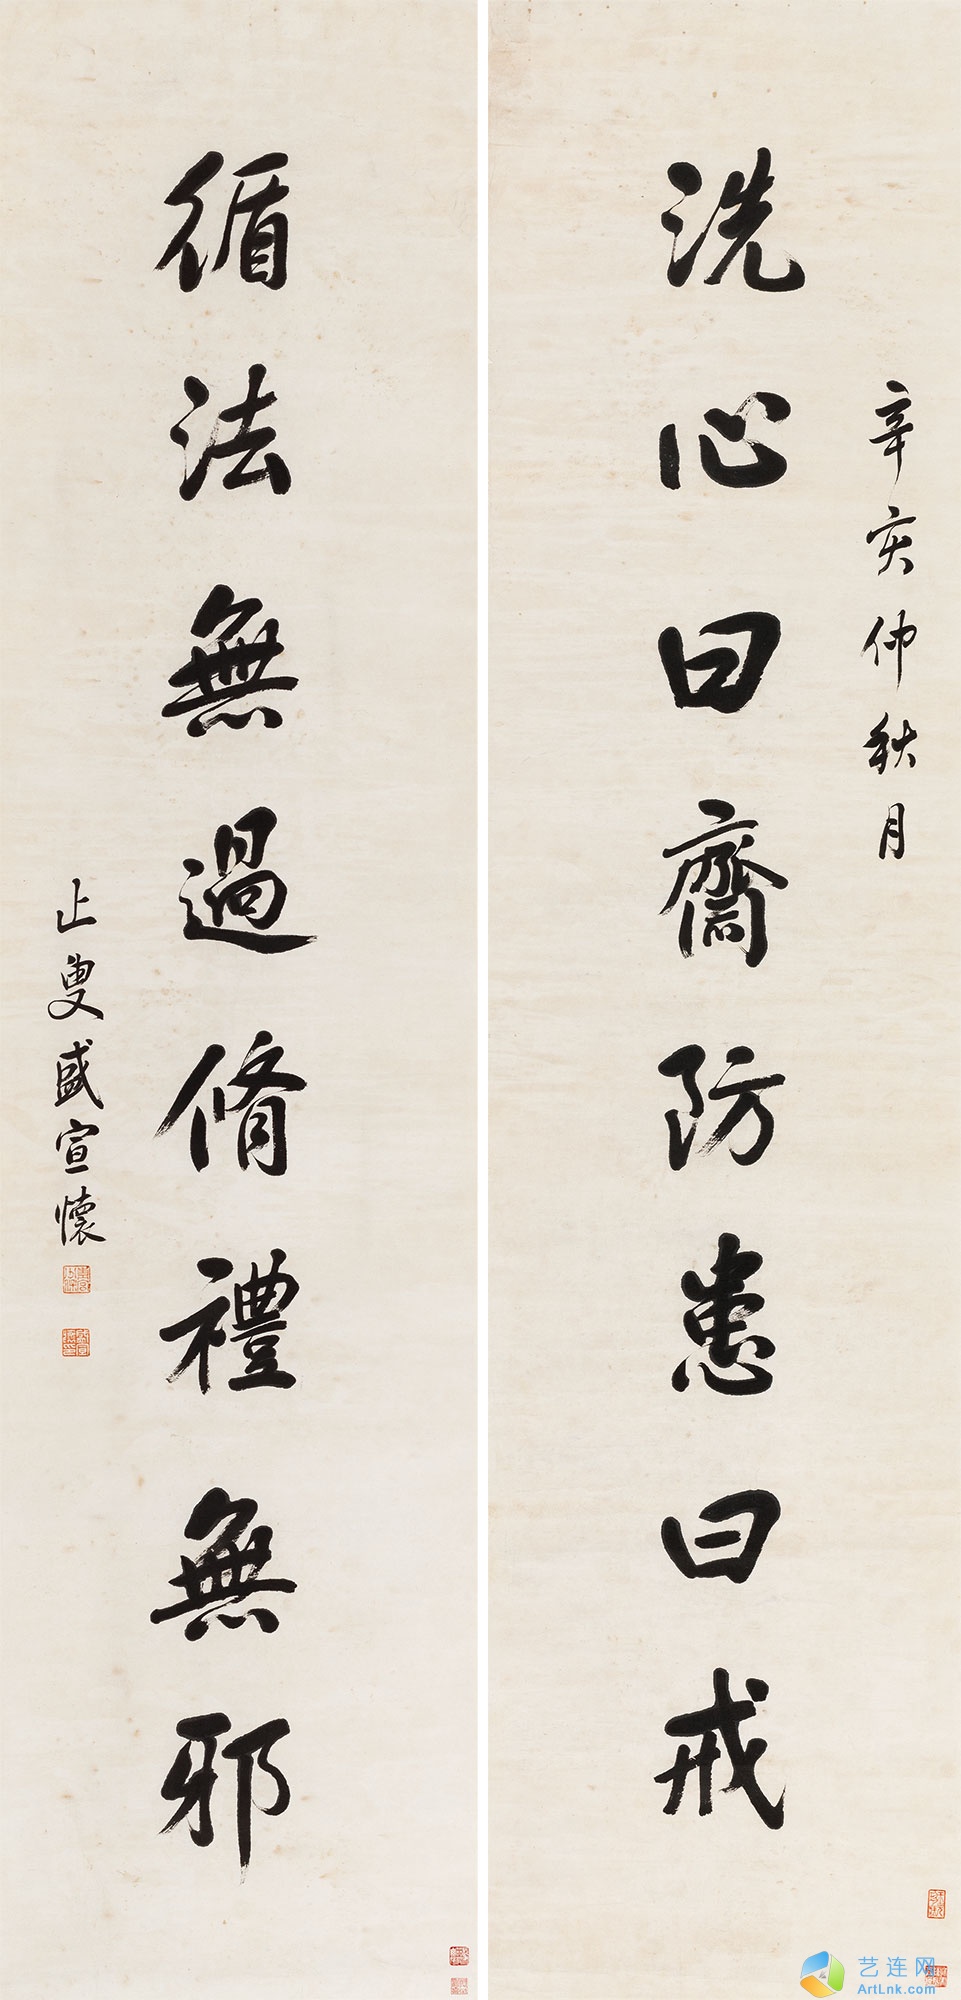 辛亥仲秋月
洗心曰齋防患曰戒
循法無過脩禮無邪
止叟盛宣懷
艺连网
ArtLnk.com